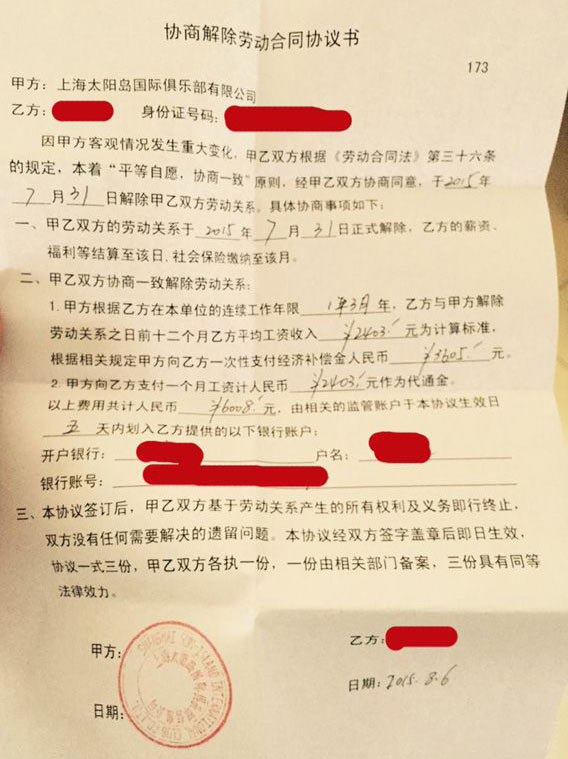 协商解除劳动合同协议书
173
甲方：上海太阳岛国际俱乐部有限公司
乙方： 身份证号码：
因甲方客观情况发生重大变化，甲乙双方根据《劳动合同法》第三十六条
的规定，本着“平等自愿，协商一致”原则，经甲乙双方协商同意，于2015年
7月31日解除甲乙双方劳动关系。具体协商事项如下：
一、甲乙双方的劳动关系于2015年7月31日正式解除，乙方的薪资、
福利等结算至该日，社会保险缴纳至该月。
二、甲乙双方协商一致解除劳动关系：
1.甲方根据乙方在本单位的连续工作年限1年3月年，乙方与甲方解除
劳动关系之日前十二个月乙方平均工资收入¥2403.-元为计算标准，
根据相关规定甲方向乙方一次性支付经济补偿金人民币¥3605.-元。
2.甲方向乙方支付一个月工资计人民币¥2403.-元作为代通金。
以上费用共计人民币¥6008.-元，由相关的监管账户于本协议生效日
五天内划入乙方提供的以下银行账户：
开户银行： 户名：
银行账号：
三、本协议签订后，甲乙双方基于劳动关系产生的所有权利及义务即行终止，
双方没有任何需要解决的遗留问题。本协议经双方签字盖章后即日生效，
协议一式三份，甲乙双方各执一份，一份由相关部门备案，三份具有同等
法律效力。
甲方：
乙方：
日期：
日期：2015.8.6
SHANGHAI SUN ISLAND INTERNATIONAL CLUB